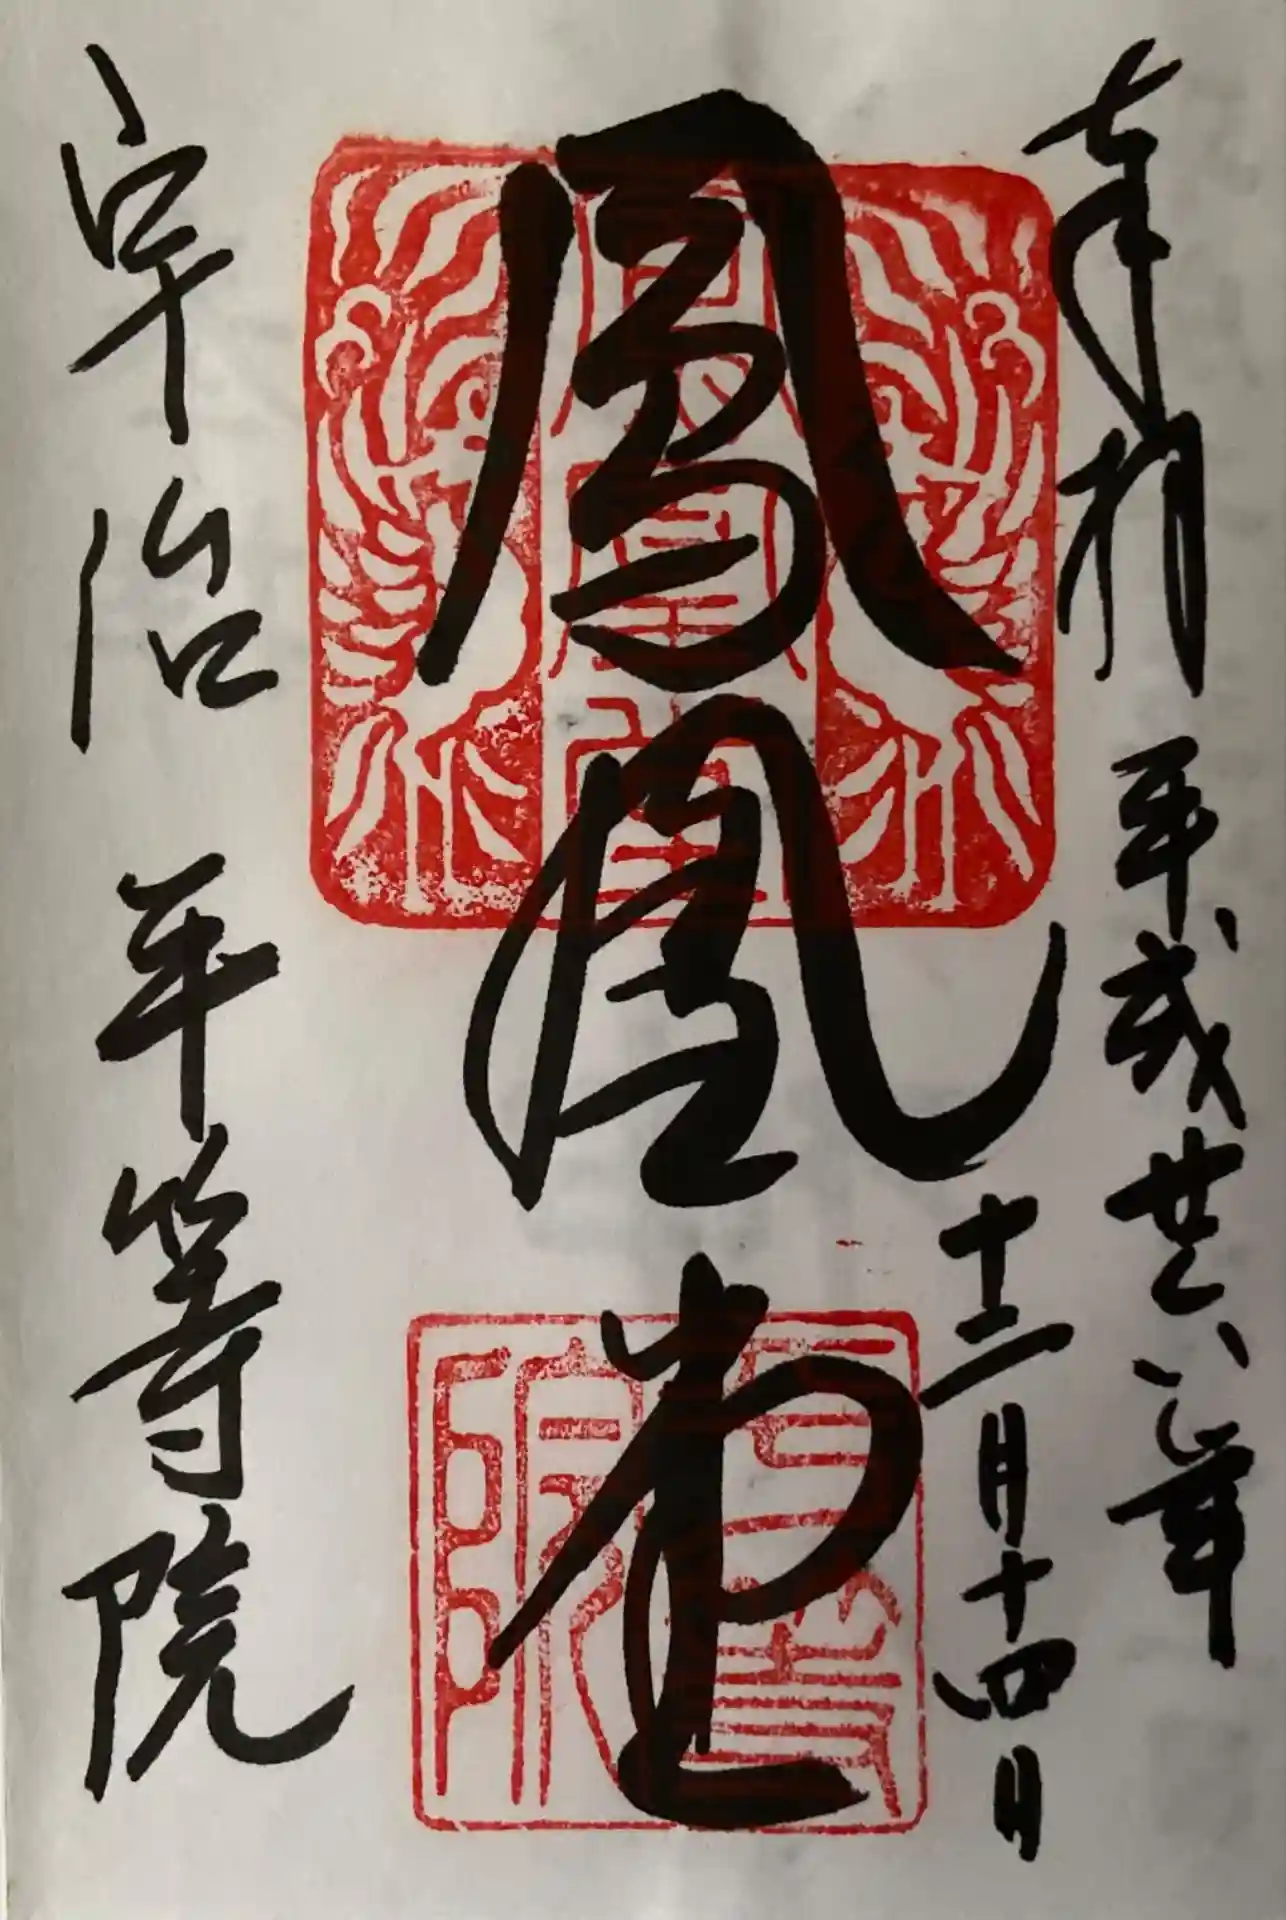 奉拝
平成廿八年
十二月十四日
鳳凰堂
宇治 平等院
鳳凰堂